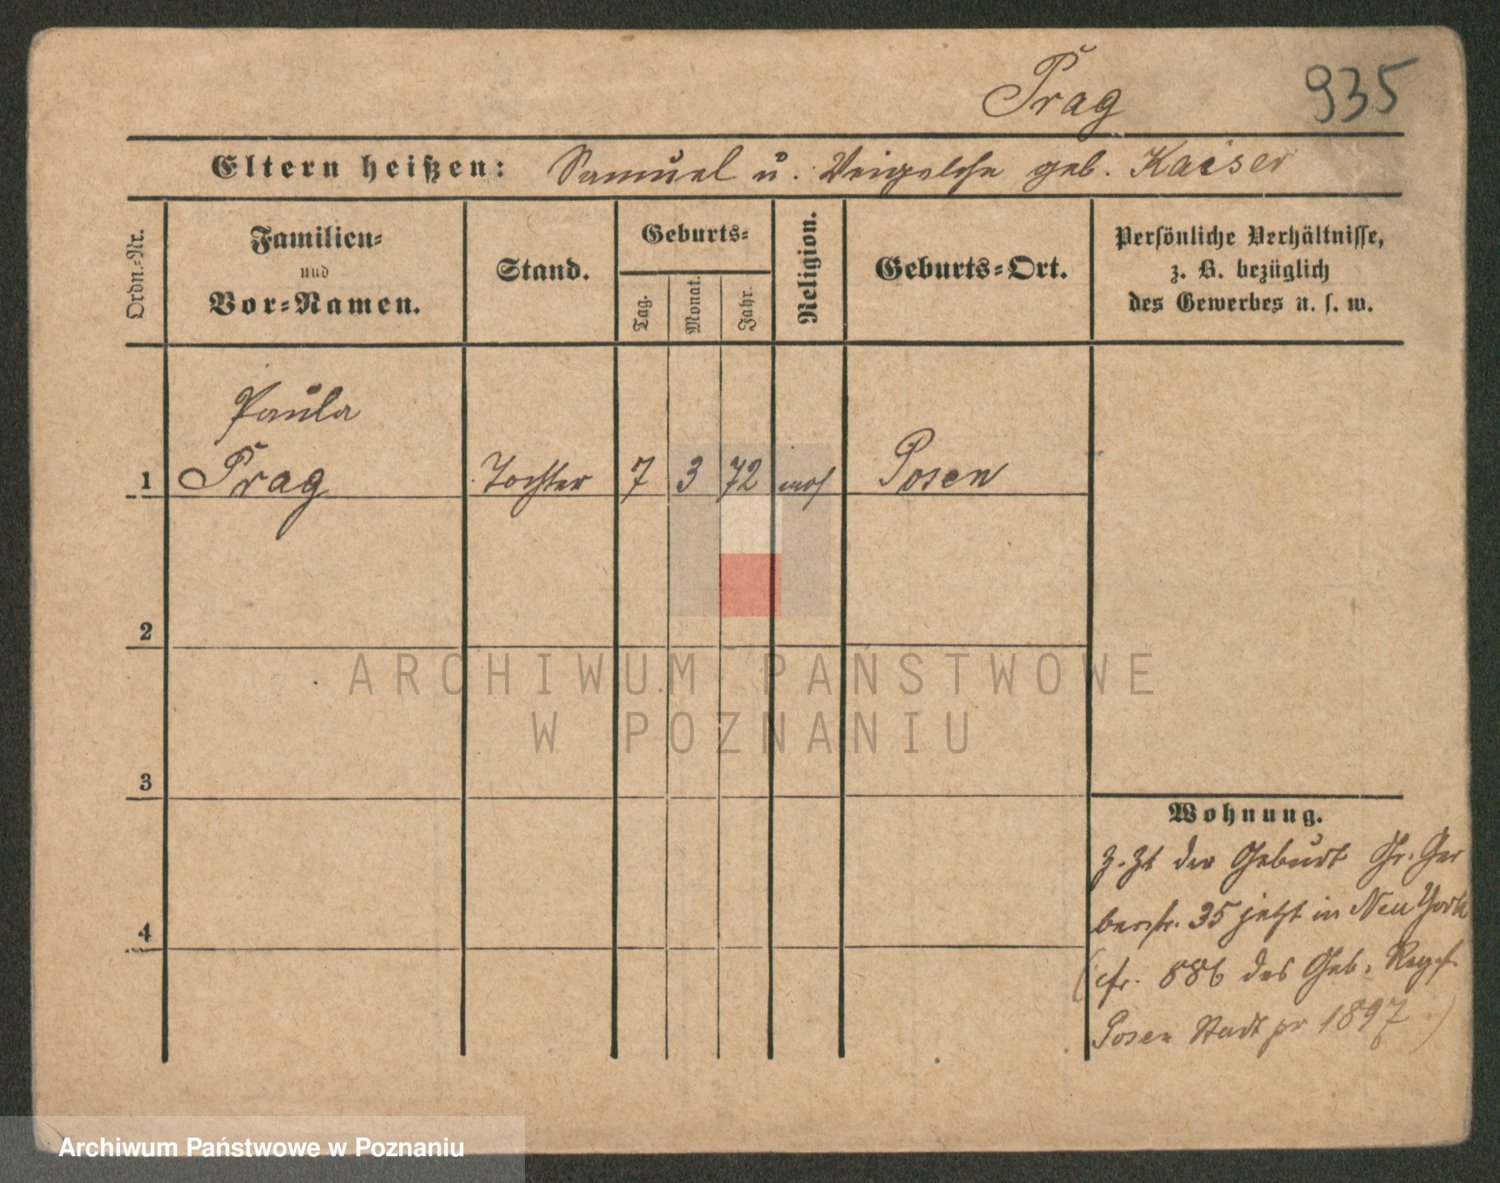 Prag 935
Eltern heißen: Samuel u. Veigelche geb. Kaiser
Ordn.-Nr.
Familien-
und
Vor-Namen.
Stand.
Geburts-
Tag.
Monat.
Jahr.
Religion.
Geburts-Ort.
Persönliche Verhältnisse,
z. B. bezüglich
des Gewerbes u. s. w.
Paula
1 Prag Tochter 7 3 72 mos Posen
2
3
4
Wohnung.
z. Zt der Geburt Gr. Ger
berstr. 35 jetzt in New York
(cfr. 886 des Geb. Regist.
Posen Stadt pr 1897.)
ARCHIWUM PAŃSTWOWE
W POZNANIU
Archiwum Państwowe w Poznaniu